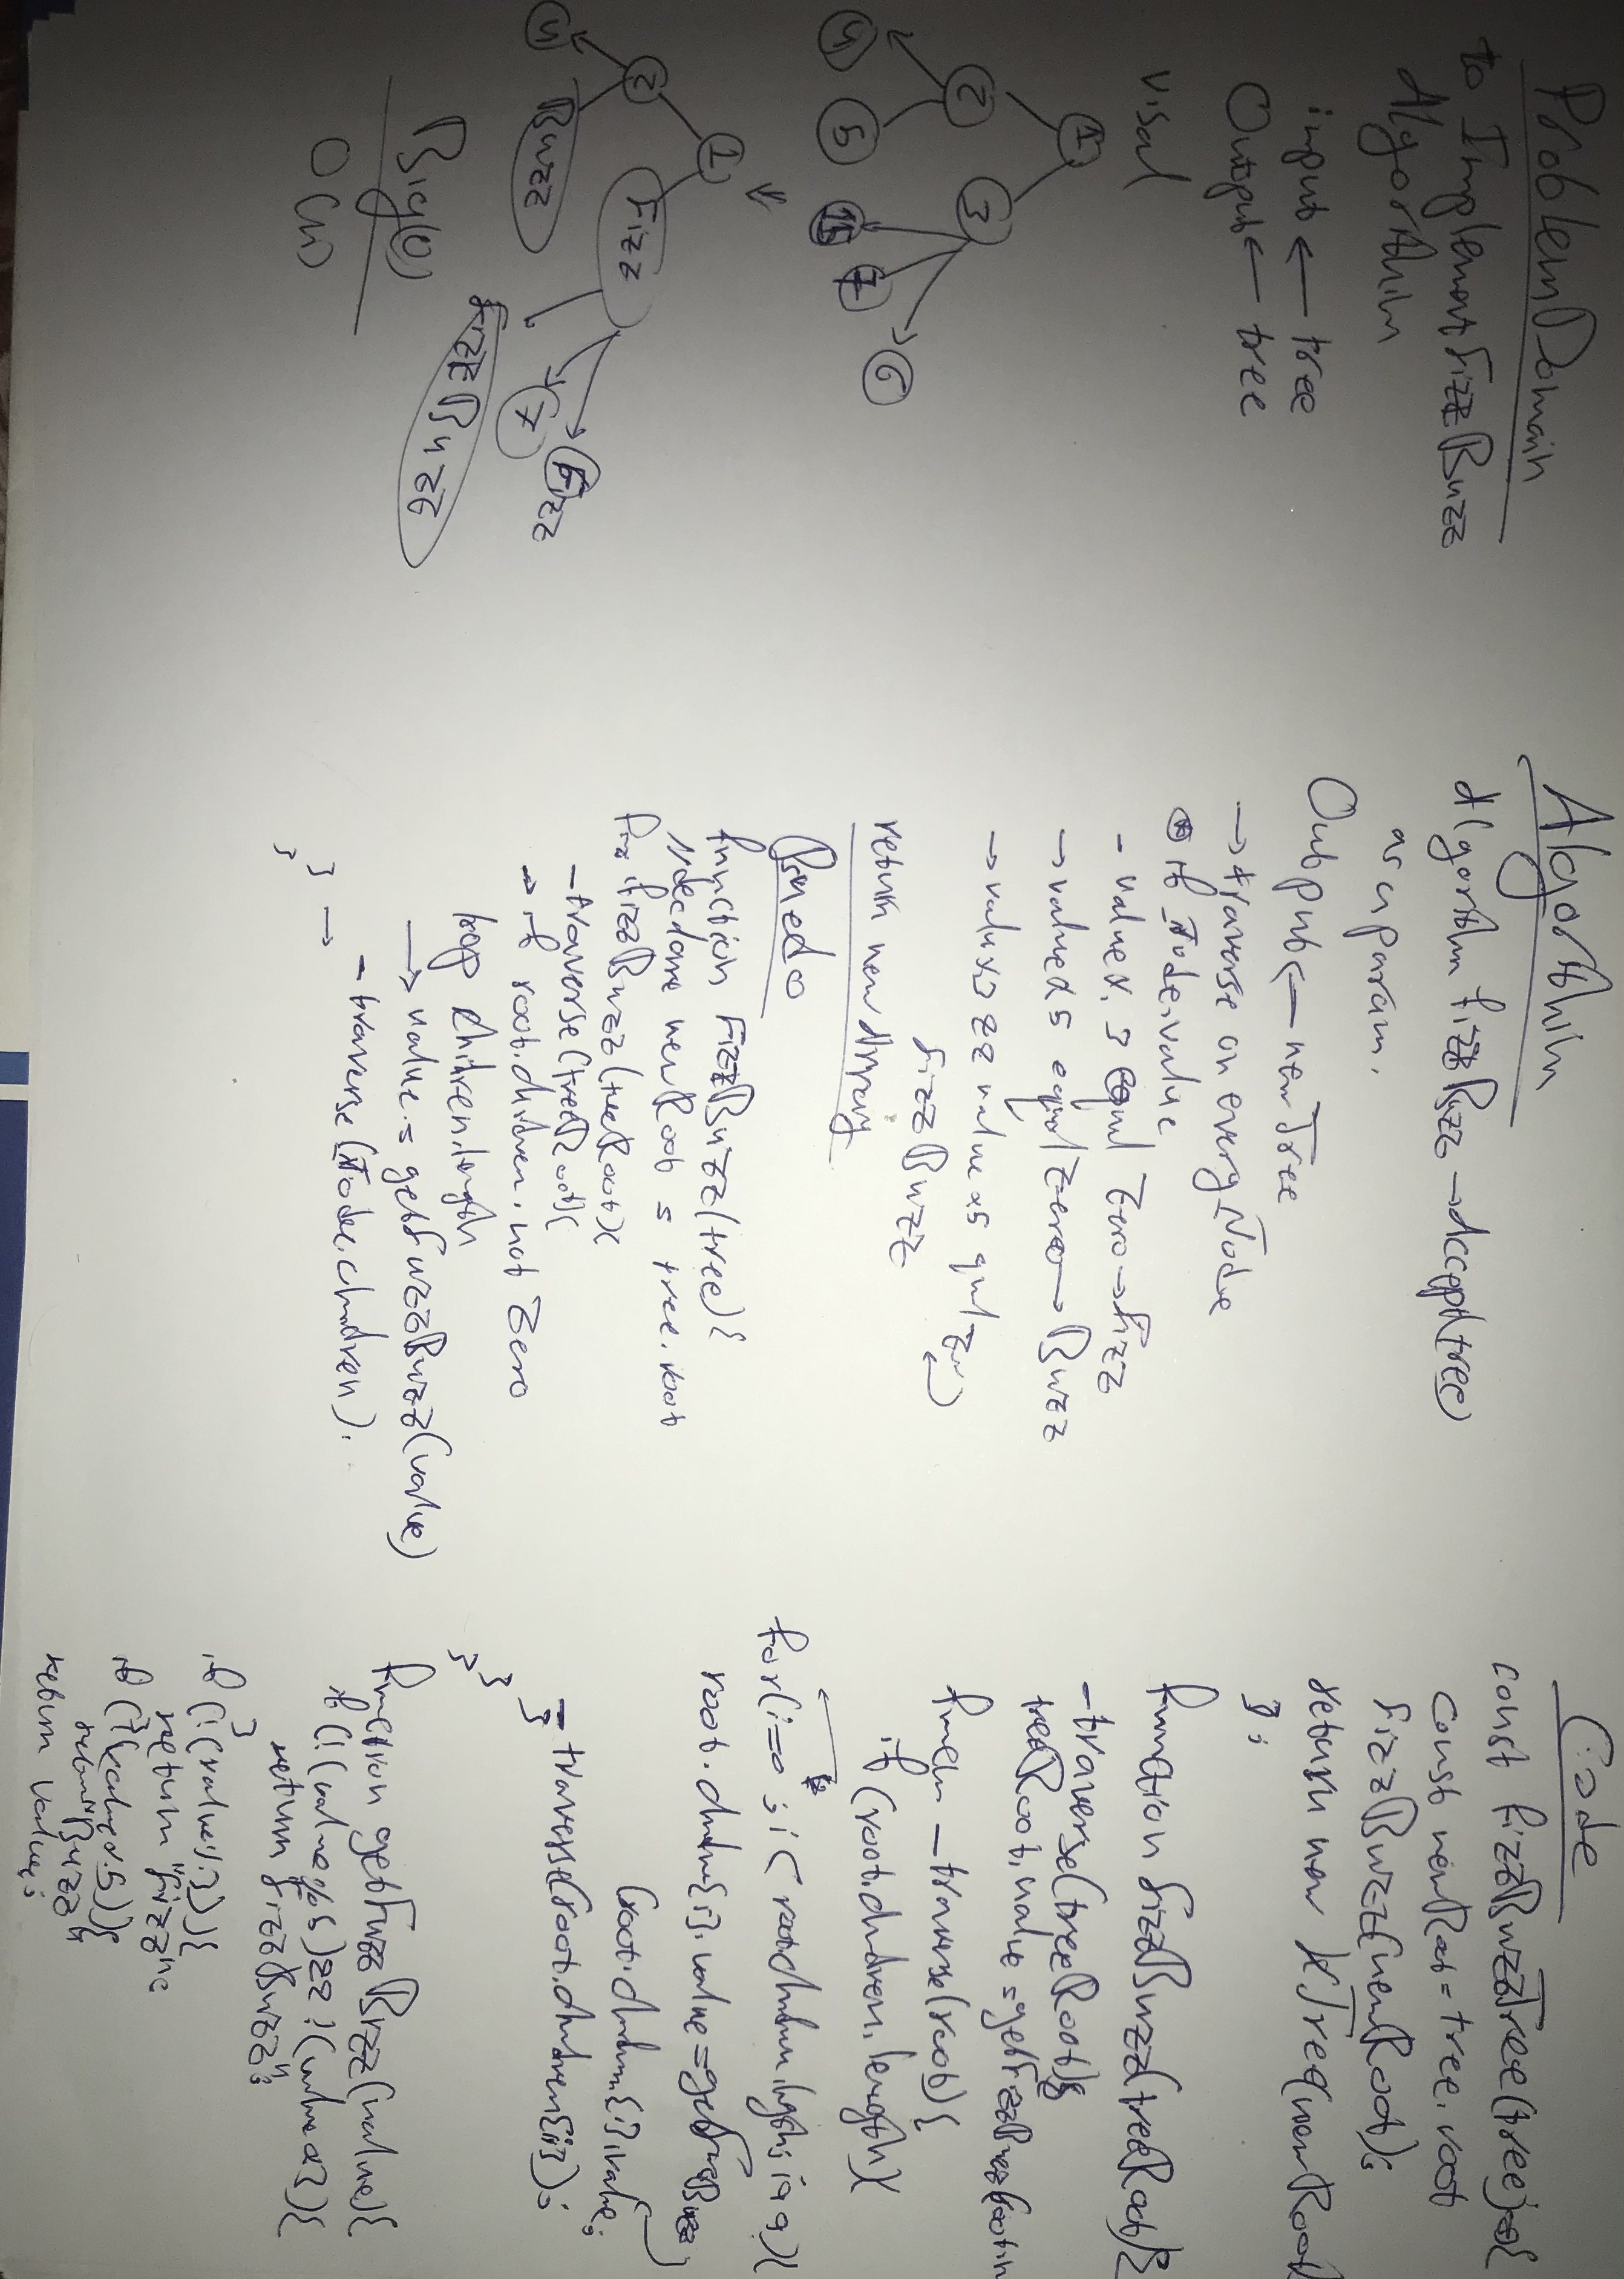 Problem Domain
to Implement FizzBuzz
Algorithim
input ← tree
Output ← tree
visal
1
2 3
4 5 15 7 6
1
2 Fizz
4 Buzz 7 Fizz
FizzBuzz
Big(O)
O(n)
Algorithim
Algorithm FizzBuzz → Accept (tree)
as a param.
Output ← new Tree
→ traverse on every Node
if Node.value
- value % 3 equal Zero → Fizz
→ value % 5 equal Zero → Buzz
→ value % 3 && value % 5 equal
FizzBuzz
return new Array
function FizzBuzz(tree){
declare newRoot = tree.root
FizzBuzz(treeRoot){
-traverse(treeRoot){
→ if root.children. not Zero
loop children.length
→ value = getFuzzBuzz(value)
- traverse (Node.children).
} →
}
Code
const FizzBuzzTree = (tree) => {
const newRoot = tree.root
FizzBuzz(newRoot);
return new KTree(newRoot)
};
function FizzBuzz(treeRoot){
-traverse(treeRoot);
treeRoot.value = getFizzBuzz(
_traverse(root){
if (root.children.length){
for(i=0; i< root.children.length; i++){
root.children[i].value = getFizzBuzz
(root.children[i].value;
- traverse(root.children[i]);
}
}
}
function getFuzzBuzz(value){
if (!(value%5) && !(value%3){
return "FizzBuzz";
}
if (!(value%3)){
return "Fizz";
}
if (!(value%5)){
return "Buzz"
return value;